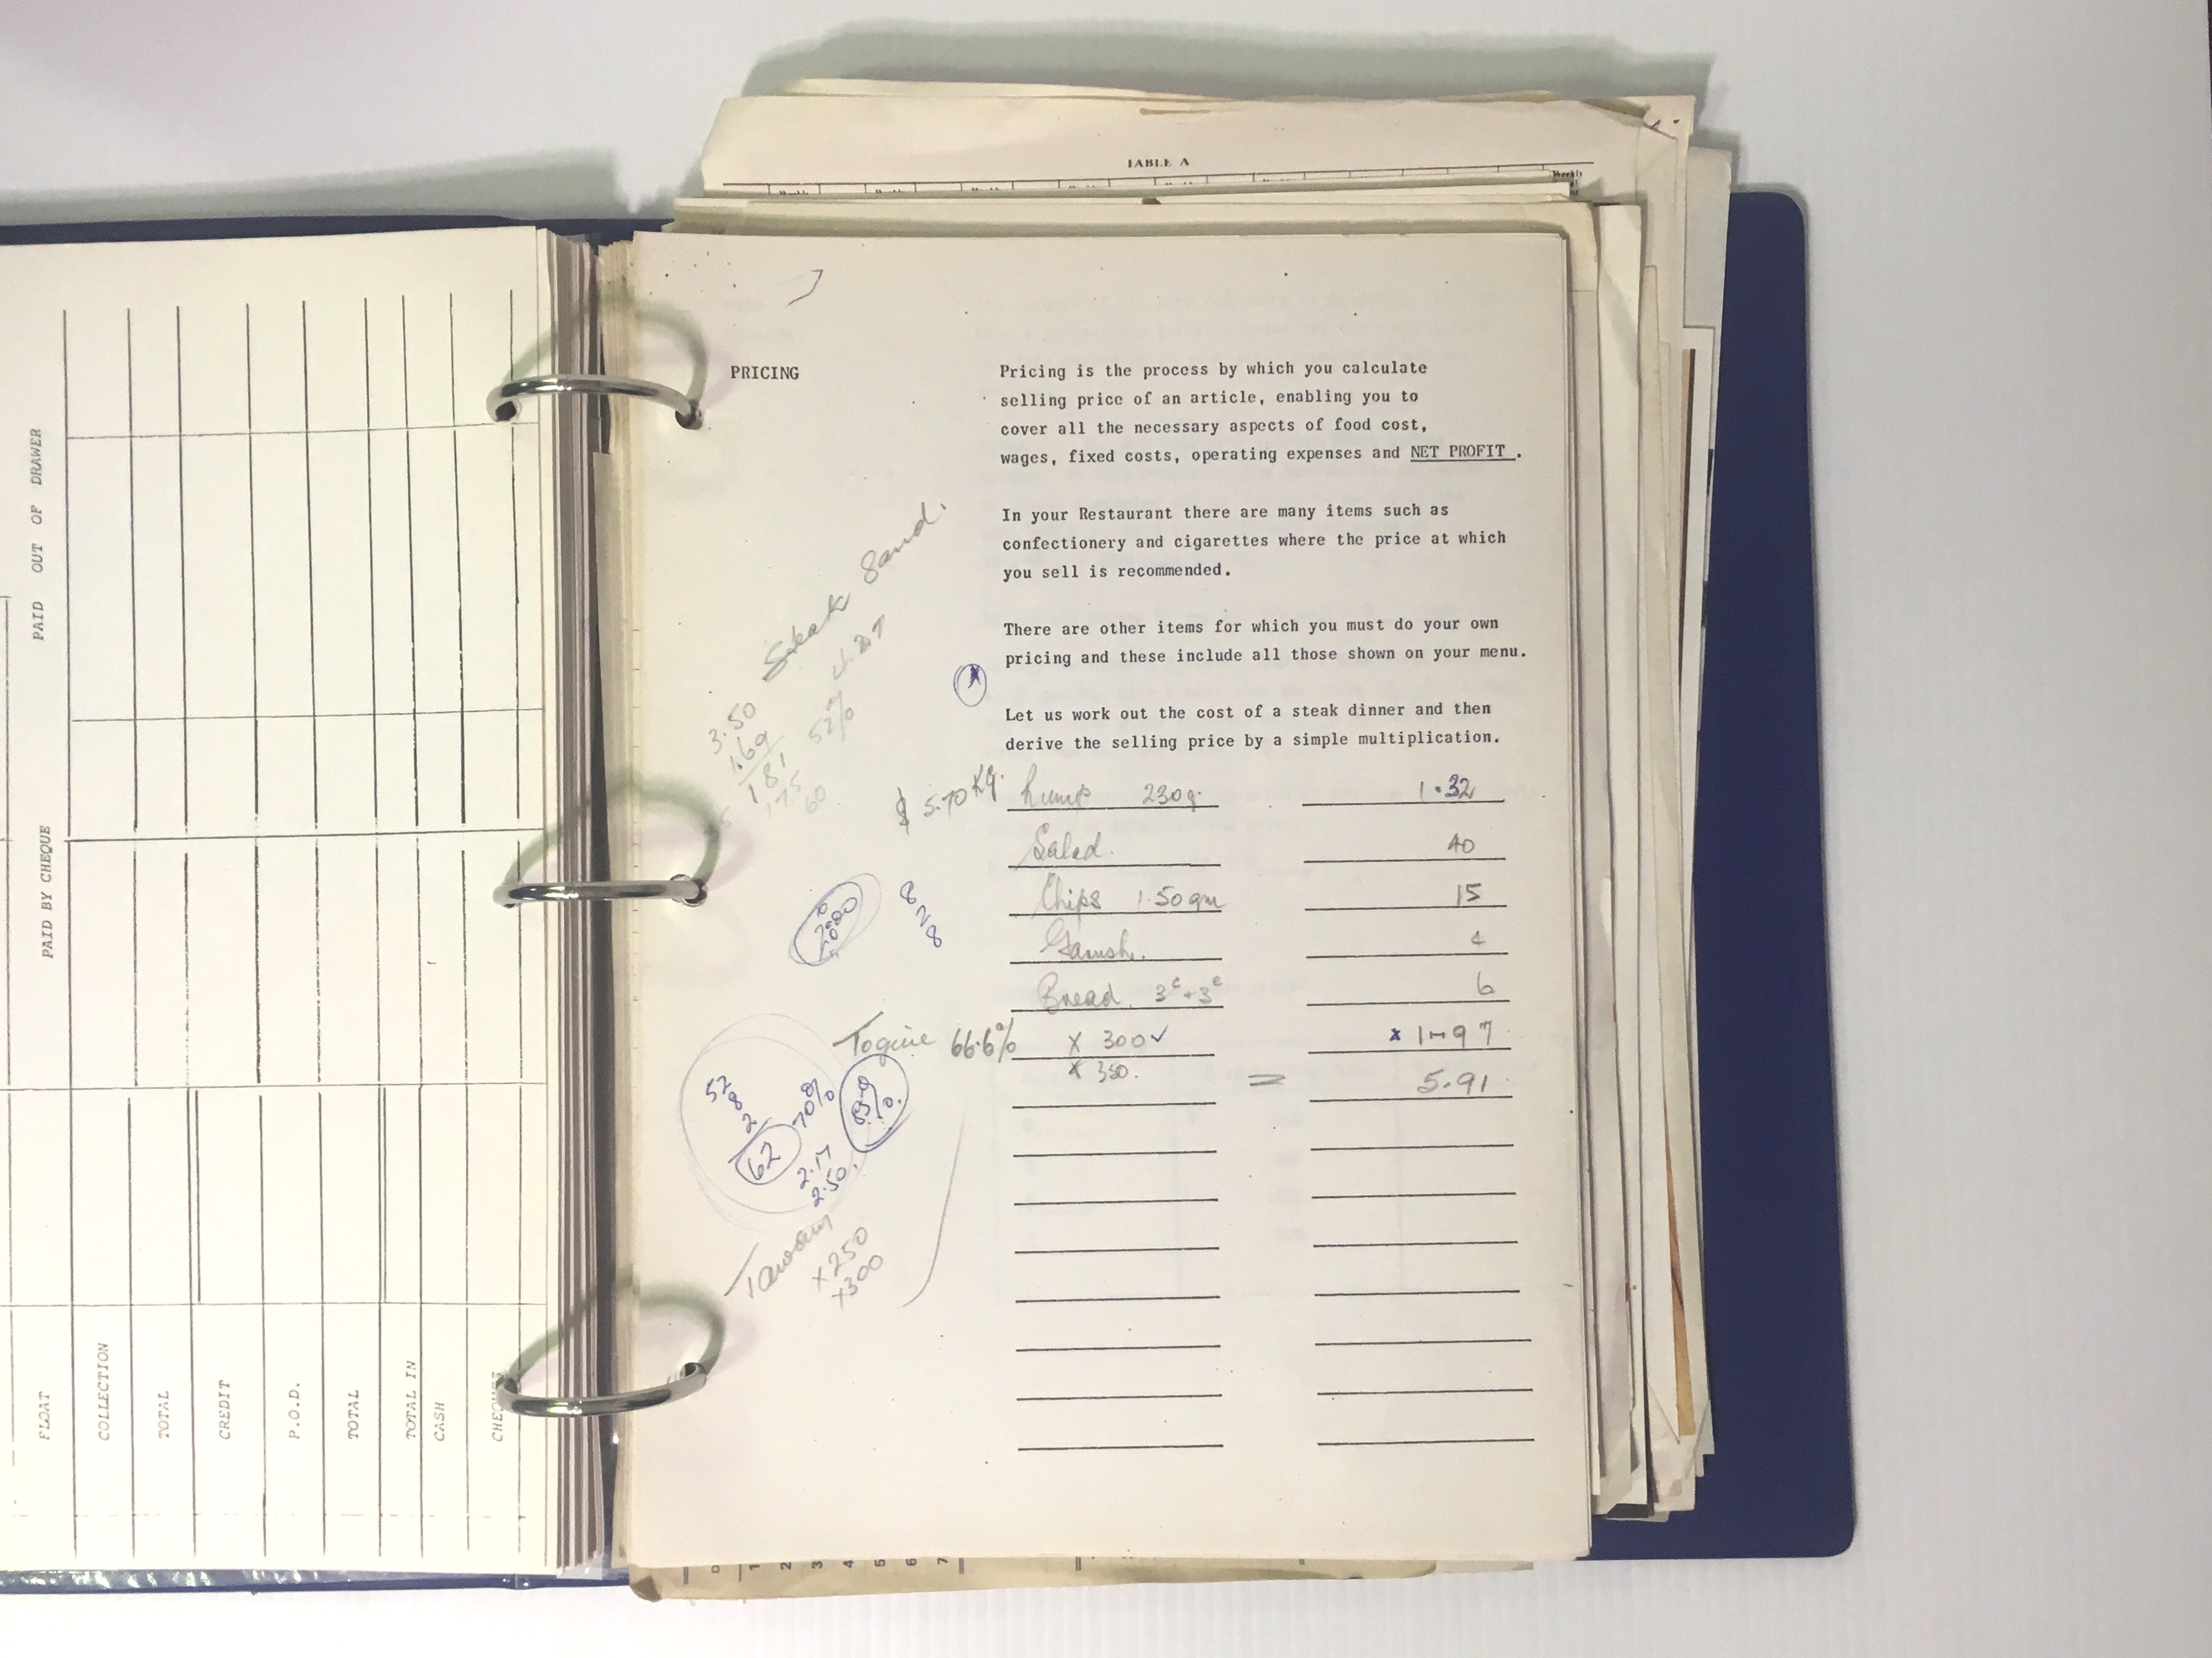 TABLE A
Weekly
PAID OUT OF DRAWER
PAID BY CHEQUE
FLOAT
COLLECTION
TOTAL
CREDIT
P.O.D.
TOTAL
TOTAL IN
CASH
PRICING
Pricing is the process by which you calculate
selling price of an article, enabling you to
cover all the necessary aspects of food cost,
wages, fixed costs, operating expenses and NET PROFIT.
In your Restaurant there are many items such as
confectionery and cigarettes where the price at which
you sell is recommended.
There are other items for which you must do your own
pricing and these include all those shown on your menu.
Let us work out the cost of a steak dinner and then
derive the selling price by a simple multiplication.
Steak Sand.
3.50
1.69
1 81
175
60
52%
$ 5.70 Kg. Rump 230g. 1.32
Salad. 40
Chips 1.50gm 15
Garnish. 4
Bread. 3c + 3c 6
66.6% x 300 ✓ x 1-97
x 350. = 5.91
8
2
8
52
8
2
62
70%
2.17
2.50.
x 250
x 300
1
2
3
4
5
6
7